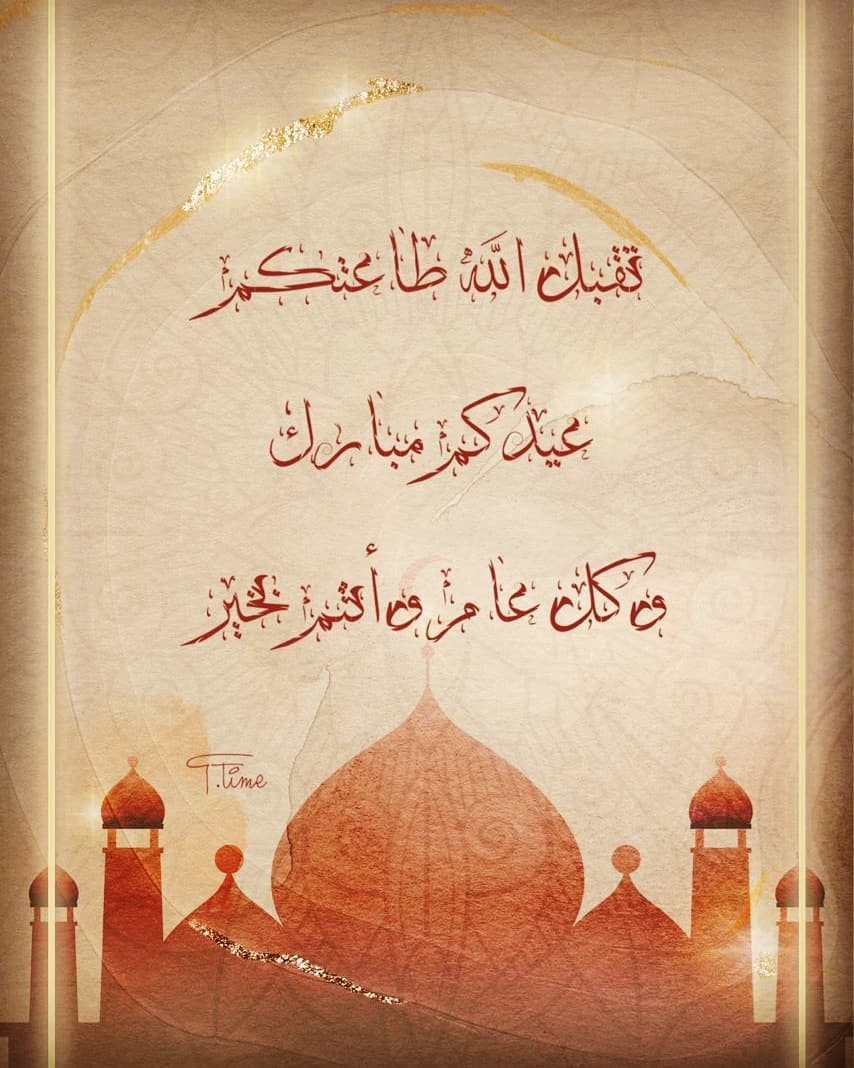 تقبل اللّه طاعتكم
عيدكم مبارك
وكل عام وأنتم بخير
T.time